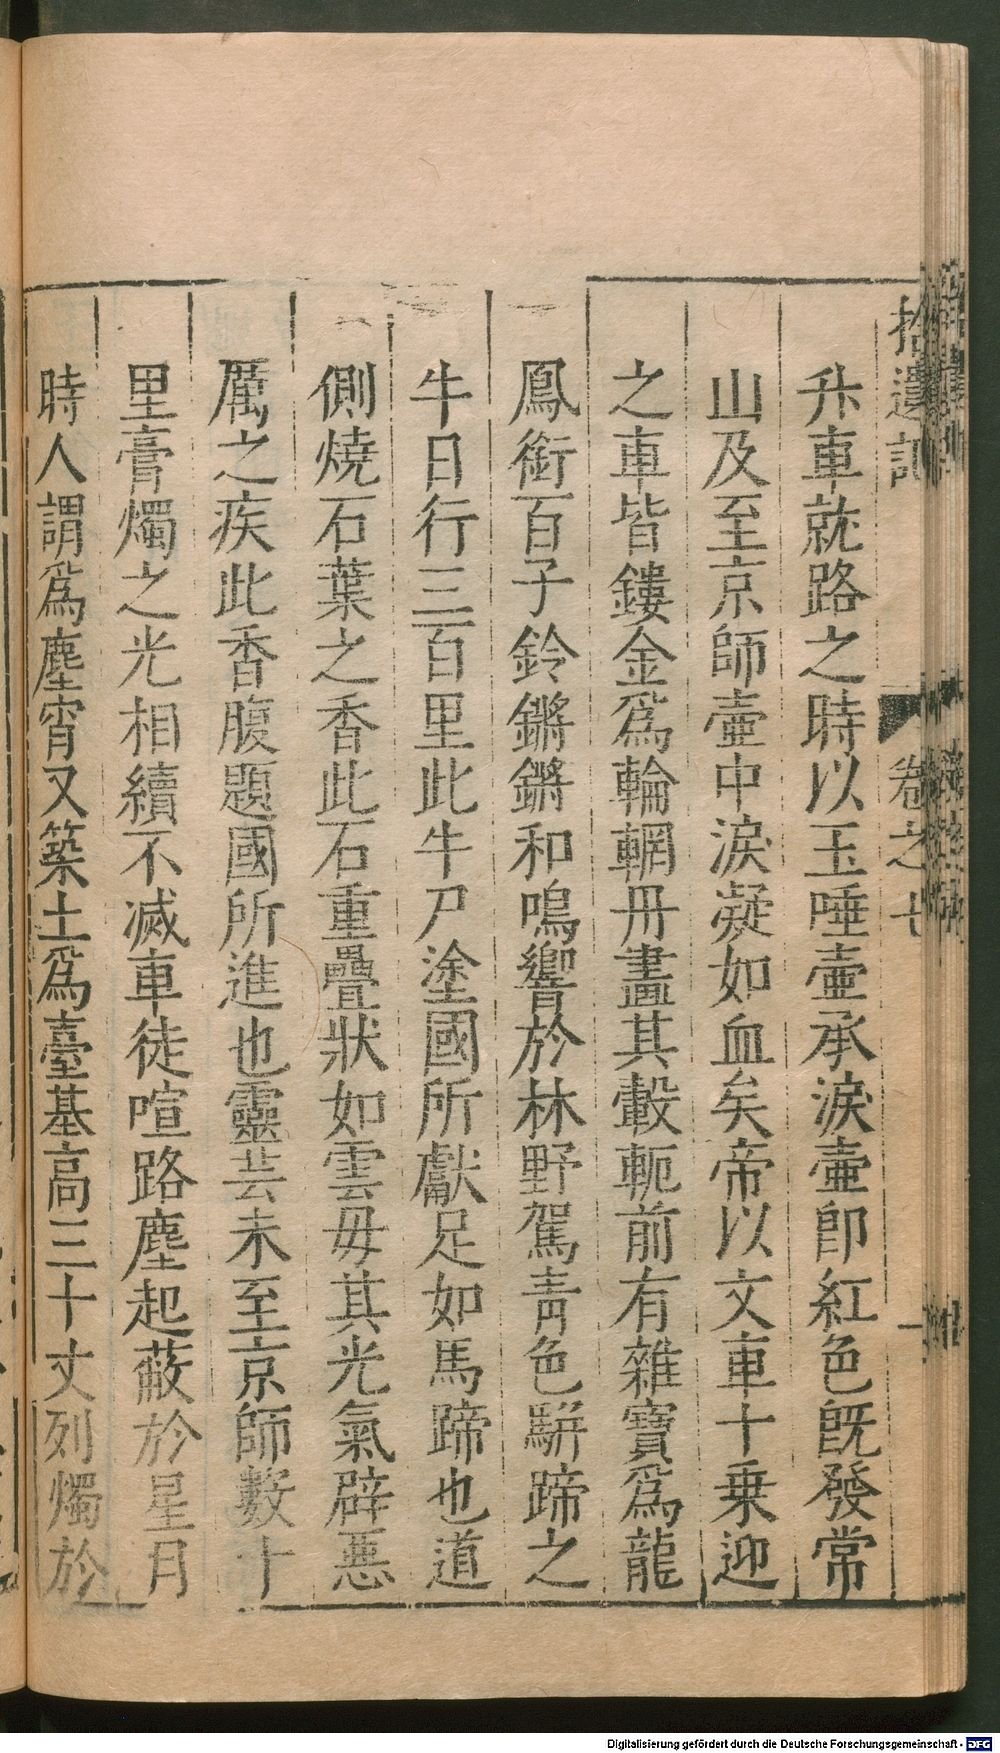 拾遺記 卷之七 一
升車就路之時以玉唾壷承淚壷卽紅色旣發常
山及至京師壷中淚凝如血矣帝以文車十乗迎
之車皆鏤金爲輪輞丹畫其轂軛前有雜寶爲龍
鳳銜百子鈴鏘鏘和鳴響於林野駕靑色駢蹄之
牛日行三百里此牛尸塗國所獻足如馬蹄也道
側燒石葉之香此石重疊狀如雲母其光氣辟惡
厲之疾此香腹題國所進也靈芸未至京師數十
里膏燭之光相續不滅車徒喧路塵起蔽於星月
時人謂爲塵宵又築土爲臺基高三十丈列燭於
Digitalisierung gefördert durch die Deutsche Forschungsgemeinschaft - DFG